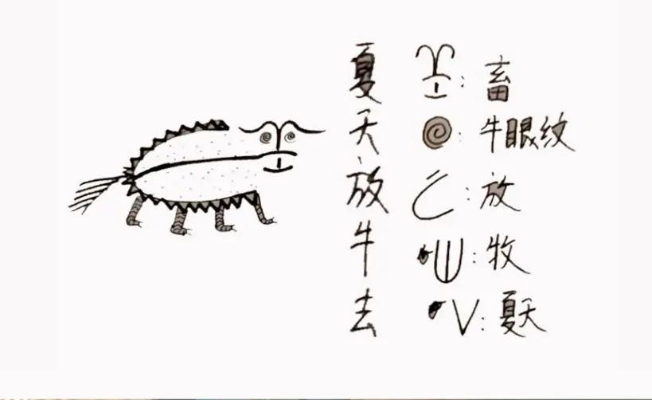 夏天放牛去
: 畜
: 牛眼纹
: 放
: 牧
: 夏天